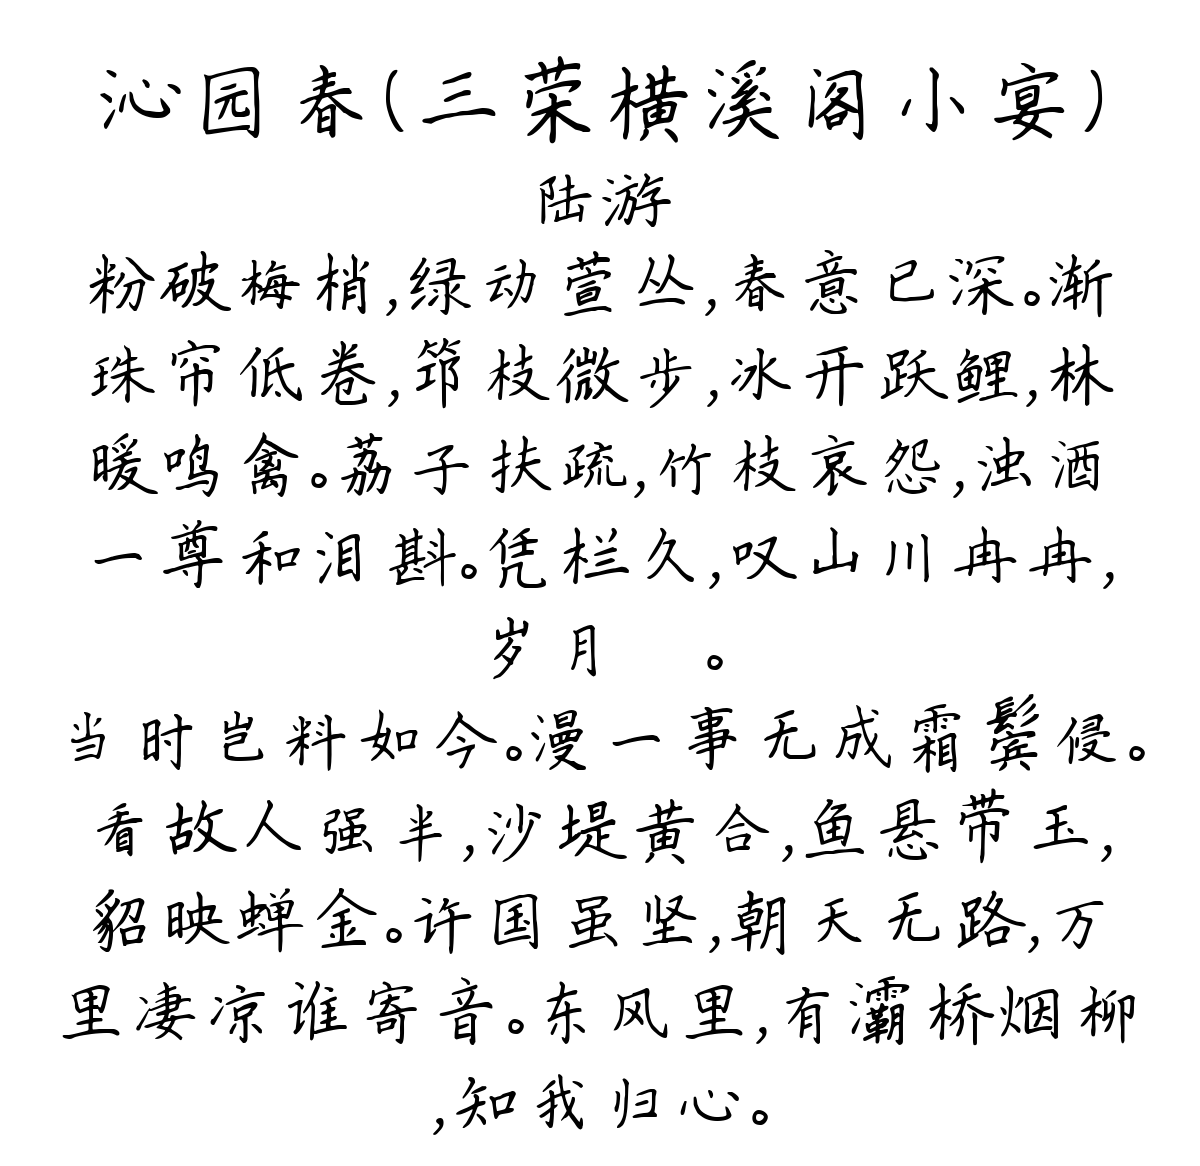 沁园春(三荣横溪阁小宴)
陆游
粉破梅梢,绿动萱丛,春意已深。渐
珠帘低卷,筇枝微步,冰开跃鲤,林
暖鸣禽。荔子扶疏,竹枝哀怨,浊酒
一尊和泪斟。凭栏久,叹山川冉冉,
岁月 。
当时岂料如今。漫一事无成霜鬓侵。
看故人强半,沙堤黄合,鱼悬带玉,
貂映蝉金。许国虽坚,朝天无路,万
里凄凉谁寄音。东风里,有灞桥烟柳
,知我归心。